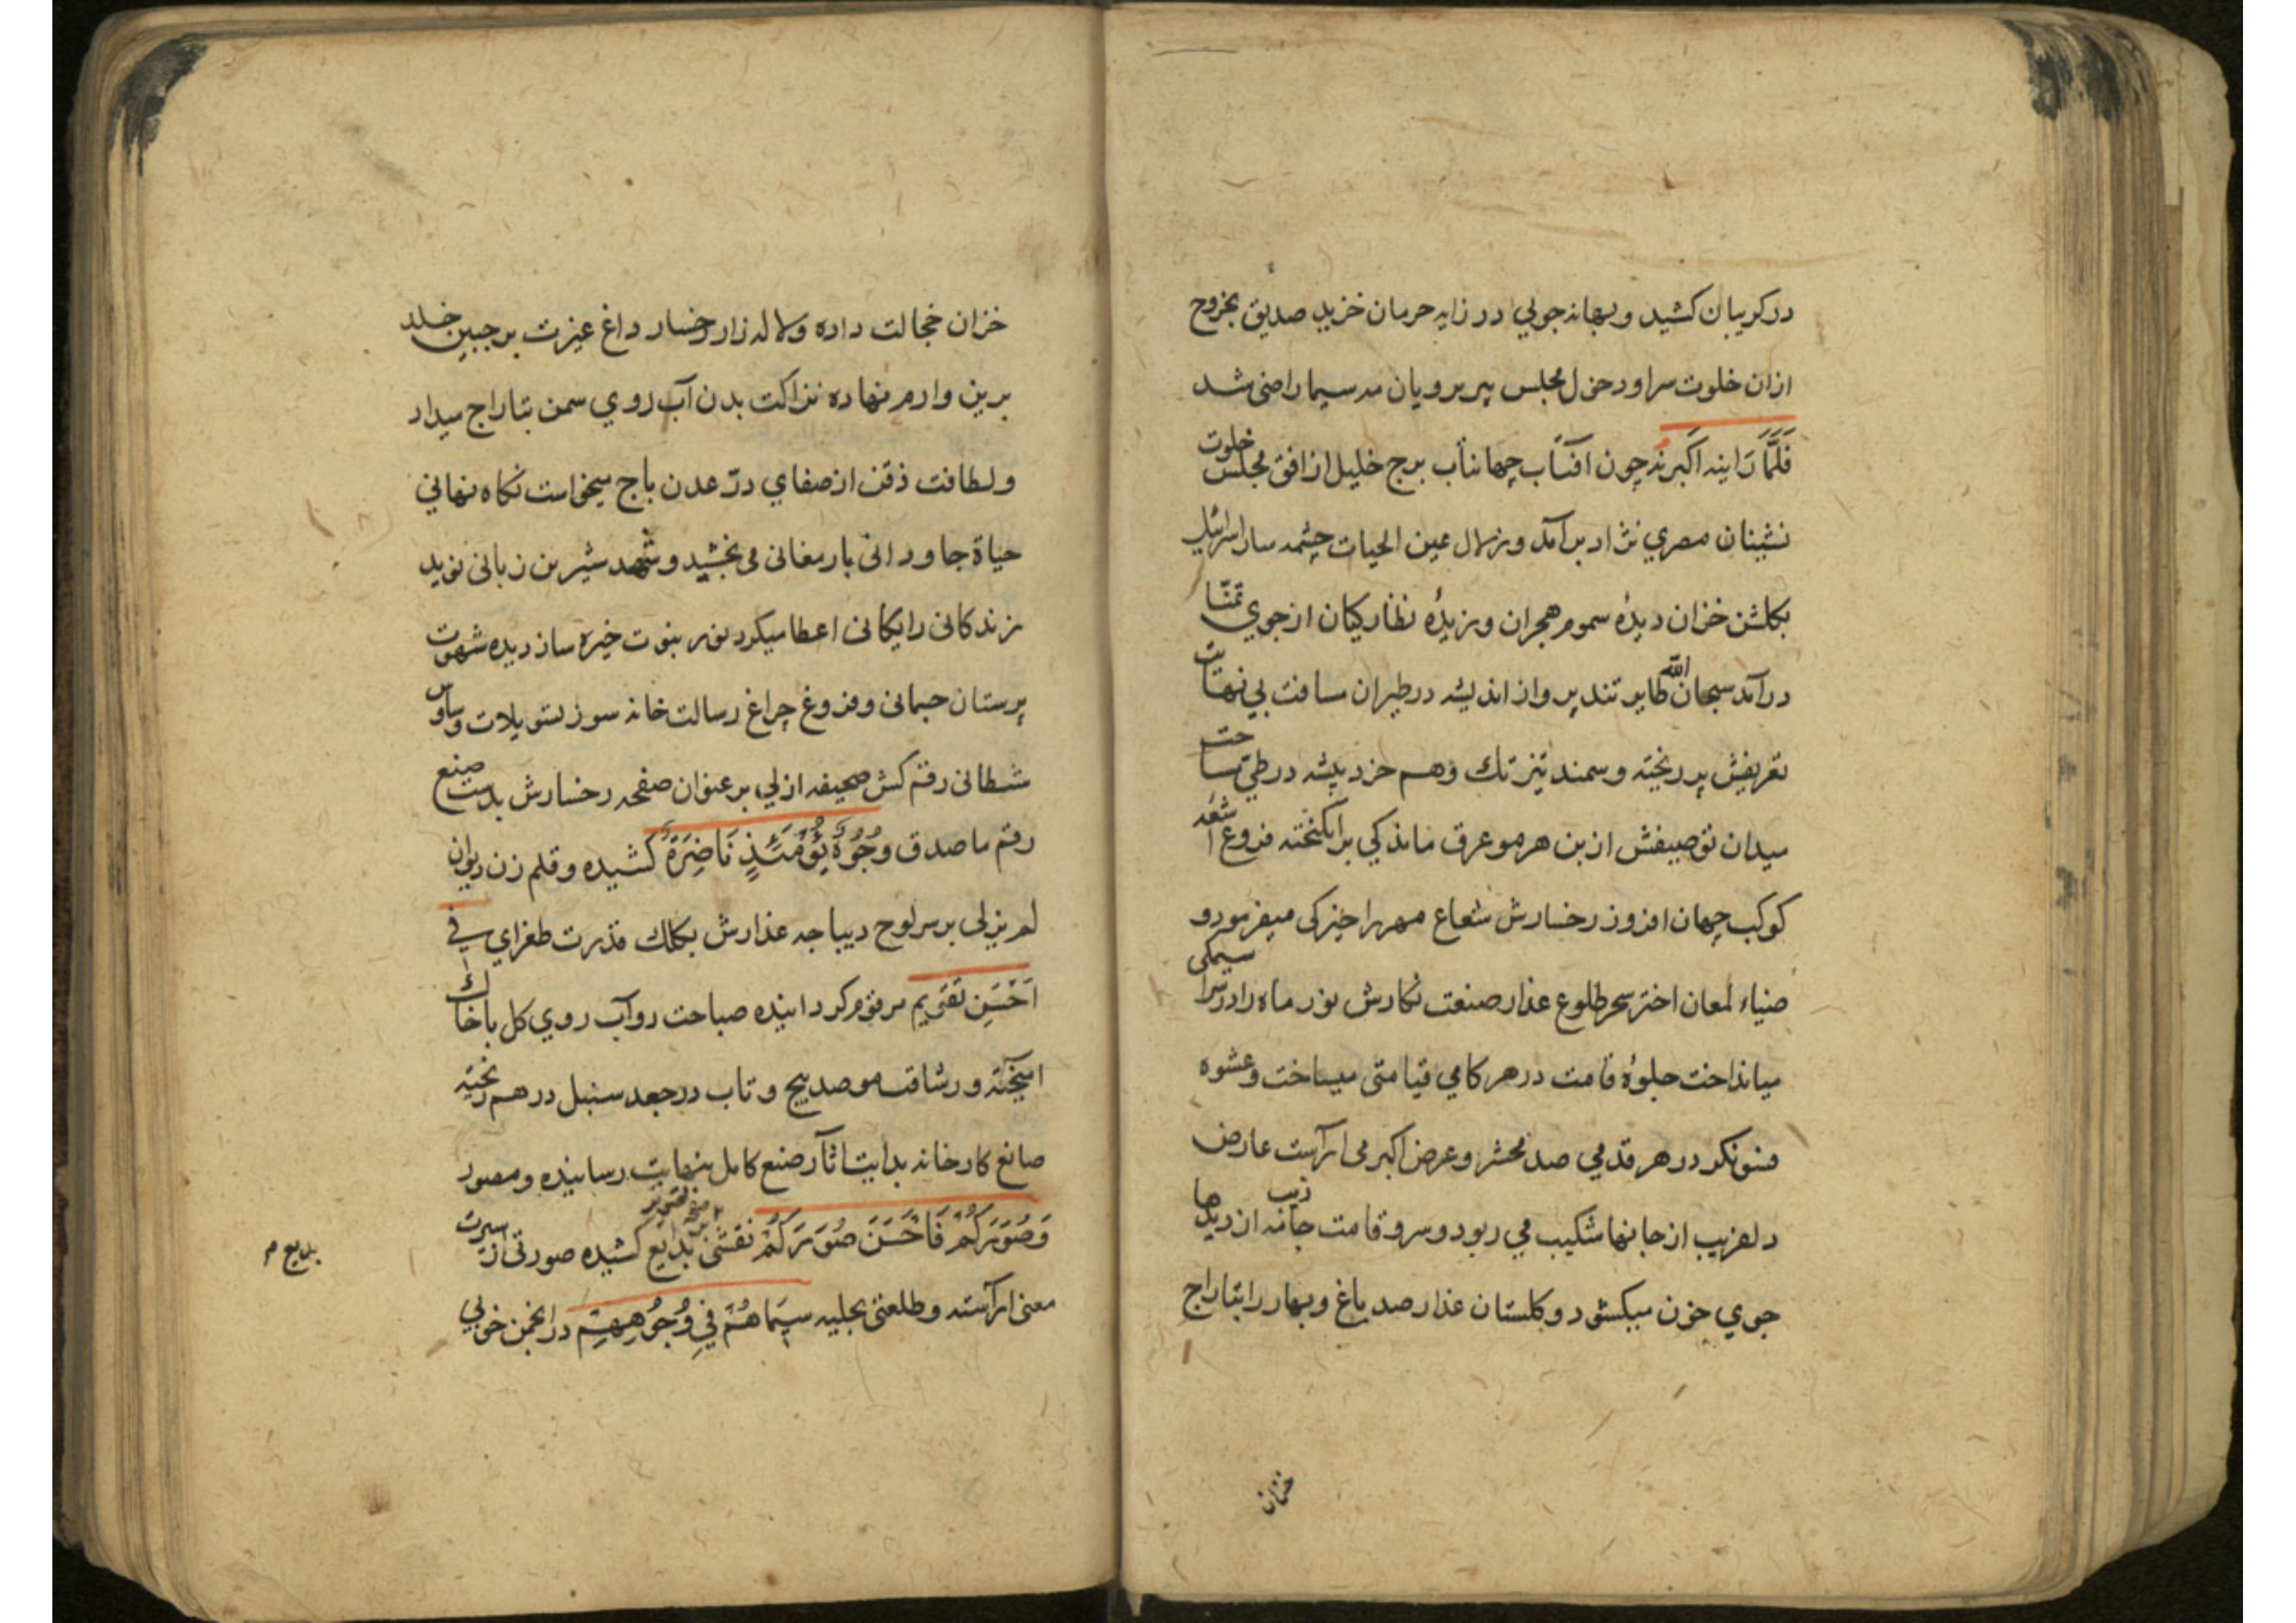 در کریبان کشید و بهانه جویي در زایه حرمان خزید صدیق بخروج
ازان خلوت سرا و دخول مجلس پیر برویان مه سیما راضی شد
فَلَمَّا رَاینه اَکبَرنه چون افتاب جهانتاب برج خلیل از افق مجلس خلوت
نشینان مصري نژاد بر آمد و بزلال عین الحیات چشمه سار اسرائیل
بکلشن خزان دیدهٔ سموم هجران و نظارکیان از جوي تمنّا
در آمد سبحان الله طایر تند پرواز اندیشه در طیران مسافت بي نهایت
تعریفش پر ریخته و سمند تیز تك وهم خرد پیشه در طي مساحت
میدان توصیفش از بن هر مو عرق ماندکي بر انکیخته فروغ اشعه
کوکب جهان افروز رخسارش شعاع مهر را خیرکی میفرمود و
ضیاء لمعان اختر سحر طلوع عذار صنعت نکارش نور ماه را در سراسیمکی
میانداخت جلوهٔ قامت در هر کامي قیامتی میساخت و عشوه
فسونکر در هر قدمي صد محشر و عرض اکبر می اراست عارض
دلفریب از جانها شکیب مي ربود و سرو قامت جامه زیب از دیدها
جوي خون میکشود و کلستان عذار صد باغ و بهار را بتاراج
خزان
خزان خجالت داده و لاله زار رخسار داغ غیرت بر جبین خلد
برین و ارم نهاده نزاکت بدن آب روي سمن بتاراج میداد
و لطافت ذقن از صفاي درّ عدن باج میخواست نکاه نهاني
حیاة جاودانی بارمغانی می بخشید و شهد شیرین زبانی نوید
زندکانی رایکانی اعطا میکرد نور نبوت خیره ساز دیده شهوت
پرستان جسمانی و فروغ چراغ رسالت خانه سوز تسویلات وساوس
شطانی رقم کش صحیفه ازلي بر عنوان صفحه رخسارش بدست صنع
رقم ما صدق وُجُوهٌ یَوْمَئِذٍ نَاضِرَةٌ کشیده و قلم زن دیوان
لم یزلی بر سر لوح دیباجه عذارش بکلك قدرت طغراي في
اَحْسَنِ تَقوِیم مرقوم کردانیده صباحت رو آب روي کل باخاك
امیخته و رشاقت مو صد پیچ و تاب در جعد سنبل در هم ریخته
صانع کارخانه بدایت اثار صنع کامل بنهایت رسانیده و مصور
وَصَوَّرَکُمْ فَاَحْسَنَ صُوَرَکُمْ نقشی بدایع کشیده صورتی از سیرت
بدایع م
معنی اراسته و طلعتی بحلیه سیمَاهُمْ فِي وُجُوهِهِمْ در انجمن خوبي